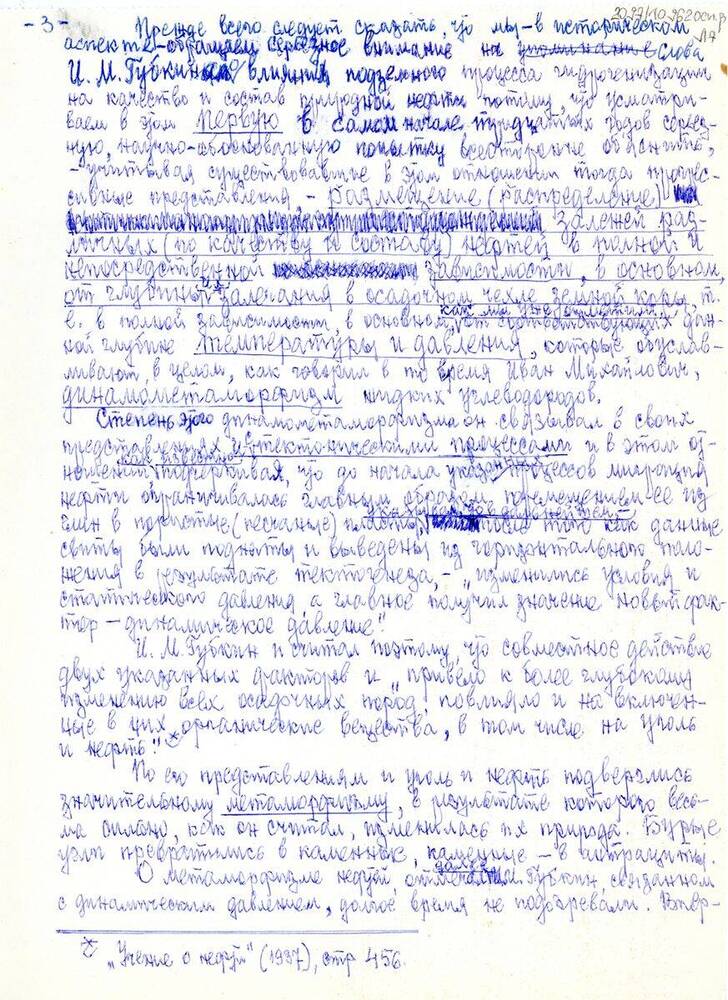 - 3 -
Прежде всего следует сказать, что мы – в историческом
аспекте – обращаем серьезное внимание на слова
И. М. Губкина влияния подземного процесса гидрогенизации
на качество и состав природной нефти потому, что усматри-
ваем в этом первую в самом начале тридцатых годов серьез-
ную, научно-обоснованную попытку всесторонне объяснить,
– учитывая существовавшие в этом отношении тогда прогрес-
сивные представления, – размещение (распределение)
залежей раз-
личных (по качеству и составу) нефтей в полной и
непосредственной зависимости, в основном,
от глубины залегания в осадочном чехле земной коры, т.
е. в полной зависимости, в основном, как мы уже отметили, от соответствующих дан-
ной глубине температуры и давления, которые обуслав-
ливают, в целом, как говорил в то время Иван Михайлович,
динамометаморфизм жидких углеводородов.
Степень этого динамометаморфизма он связывал в своих
представлениях и с тектоническими процессами и в этом от-
ношении подчеркивал, что до начала указанных процессов миграция
нефти ограничивалась главным образом перемещением ее из
глин в пористые (песчаные) пласты, после того как данные
свиты были подняты и выведены из горизонтального поло-
жения в результате тектогенеза, – „изменились условия и
статического давления, а главное получил значение новый фак-
тор – динамическое давление".
И. М. Губкин и считал поэтому, что совместное действие
двух указанных факторов и „привело к более глубокому
изменению всех осадочных пород, повлияло и на включен-
ные в них органические вещества, в том числе на уголь
и нефть".*
По его представлениям и уголь и нефть подверглись
значительному метаморфизму, в результате которого весь-
ма сильно, как он считал, изменилась их природа. Бурые
угли превратились в каменные, каменные – в антрациты.
О метаморфизме нефтей, отмечал далее Губкин, связанном
с динамическим давлением, долгое время не подозревали. Впер-
* „Учение о нефти" (1937), стр 456.